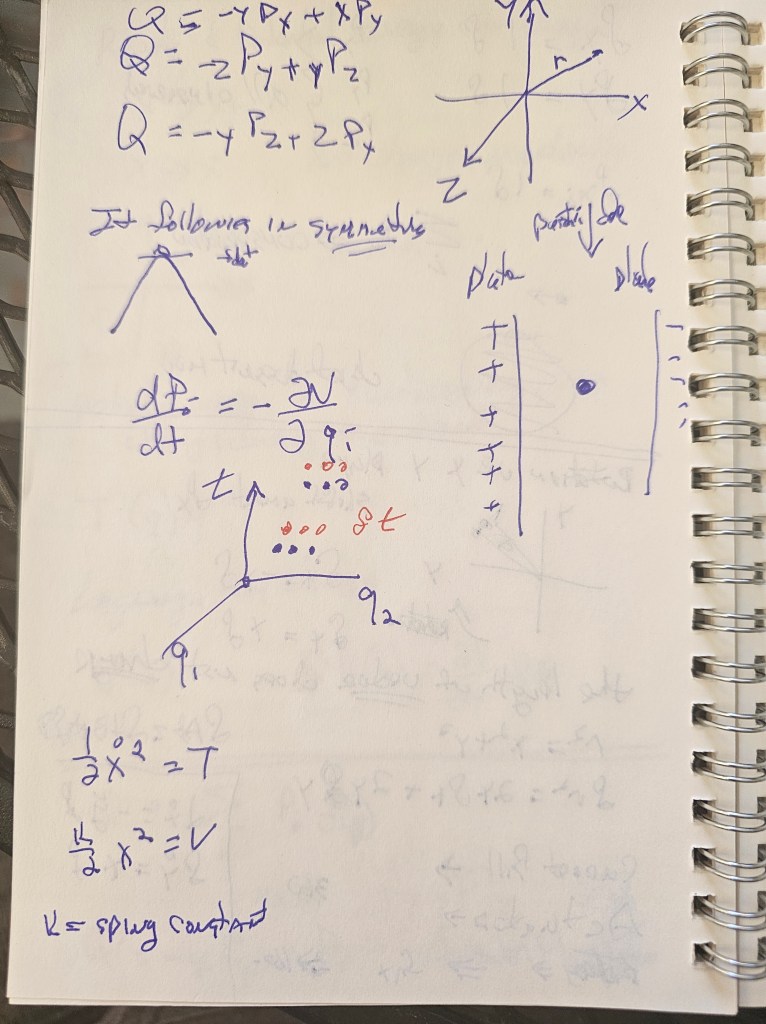 Q = -yPx + xPy
Q = -zPy + yPz
Q = -yPz + zPx
y
r
x
z
It follows in symmetrys
particle
plate
plate
+ -
+ -
+ -
+ -
+
+
dPi/dt = -∂V/∂qi
t
δt
q2
q1
1/2 ẋ² = T
k/2 x² = V
k = sping constant